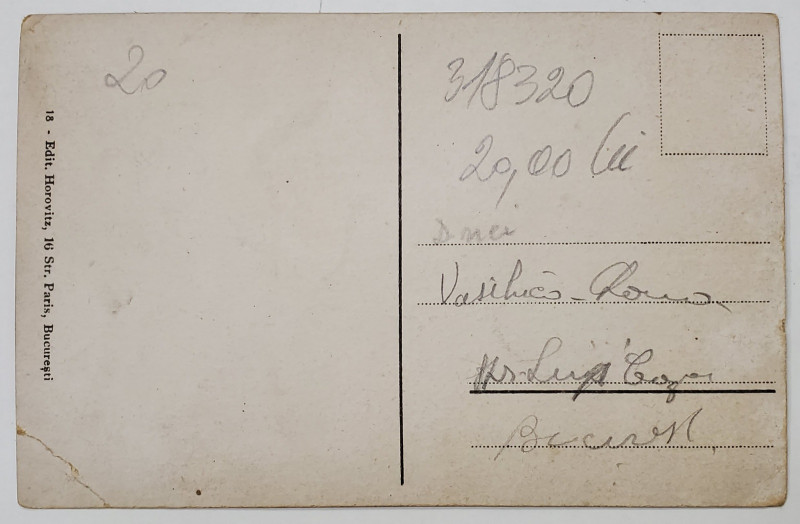 20
18 - Edit. Horovitz, 16 Str. Paris, București
318320
20,00 lei
Dnei
Vasilica
București